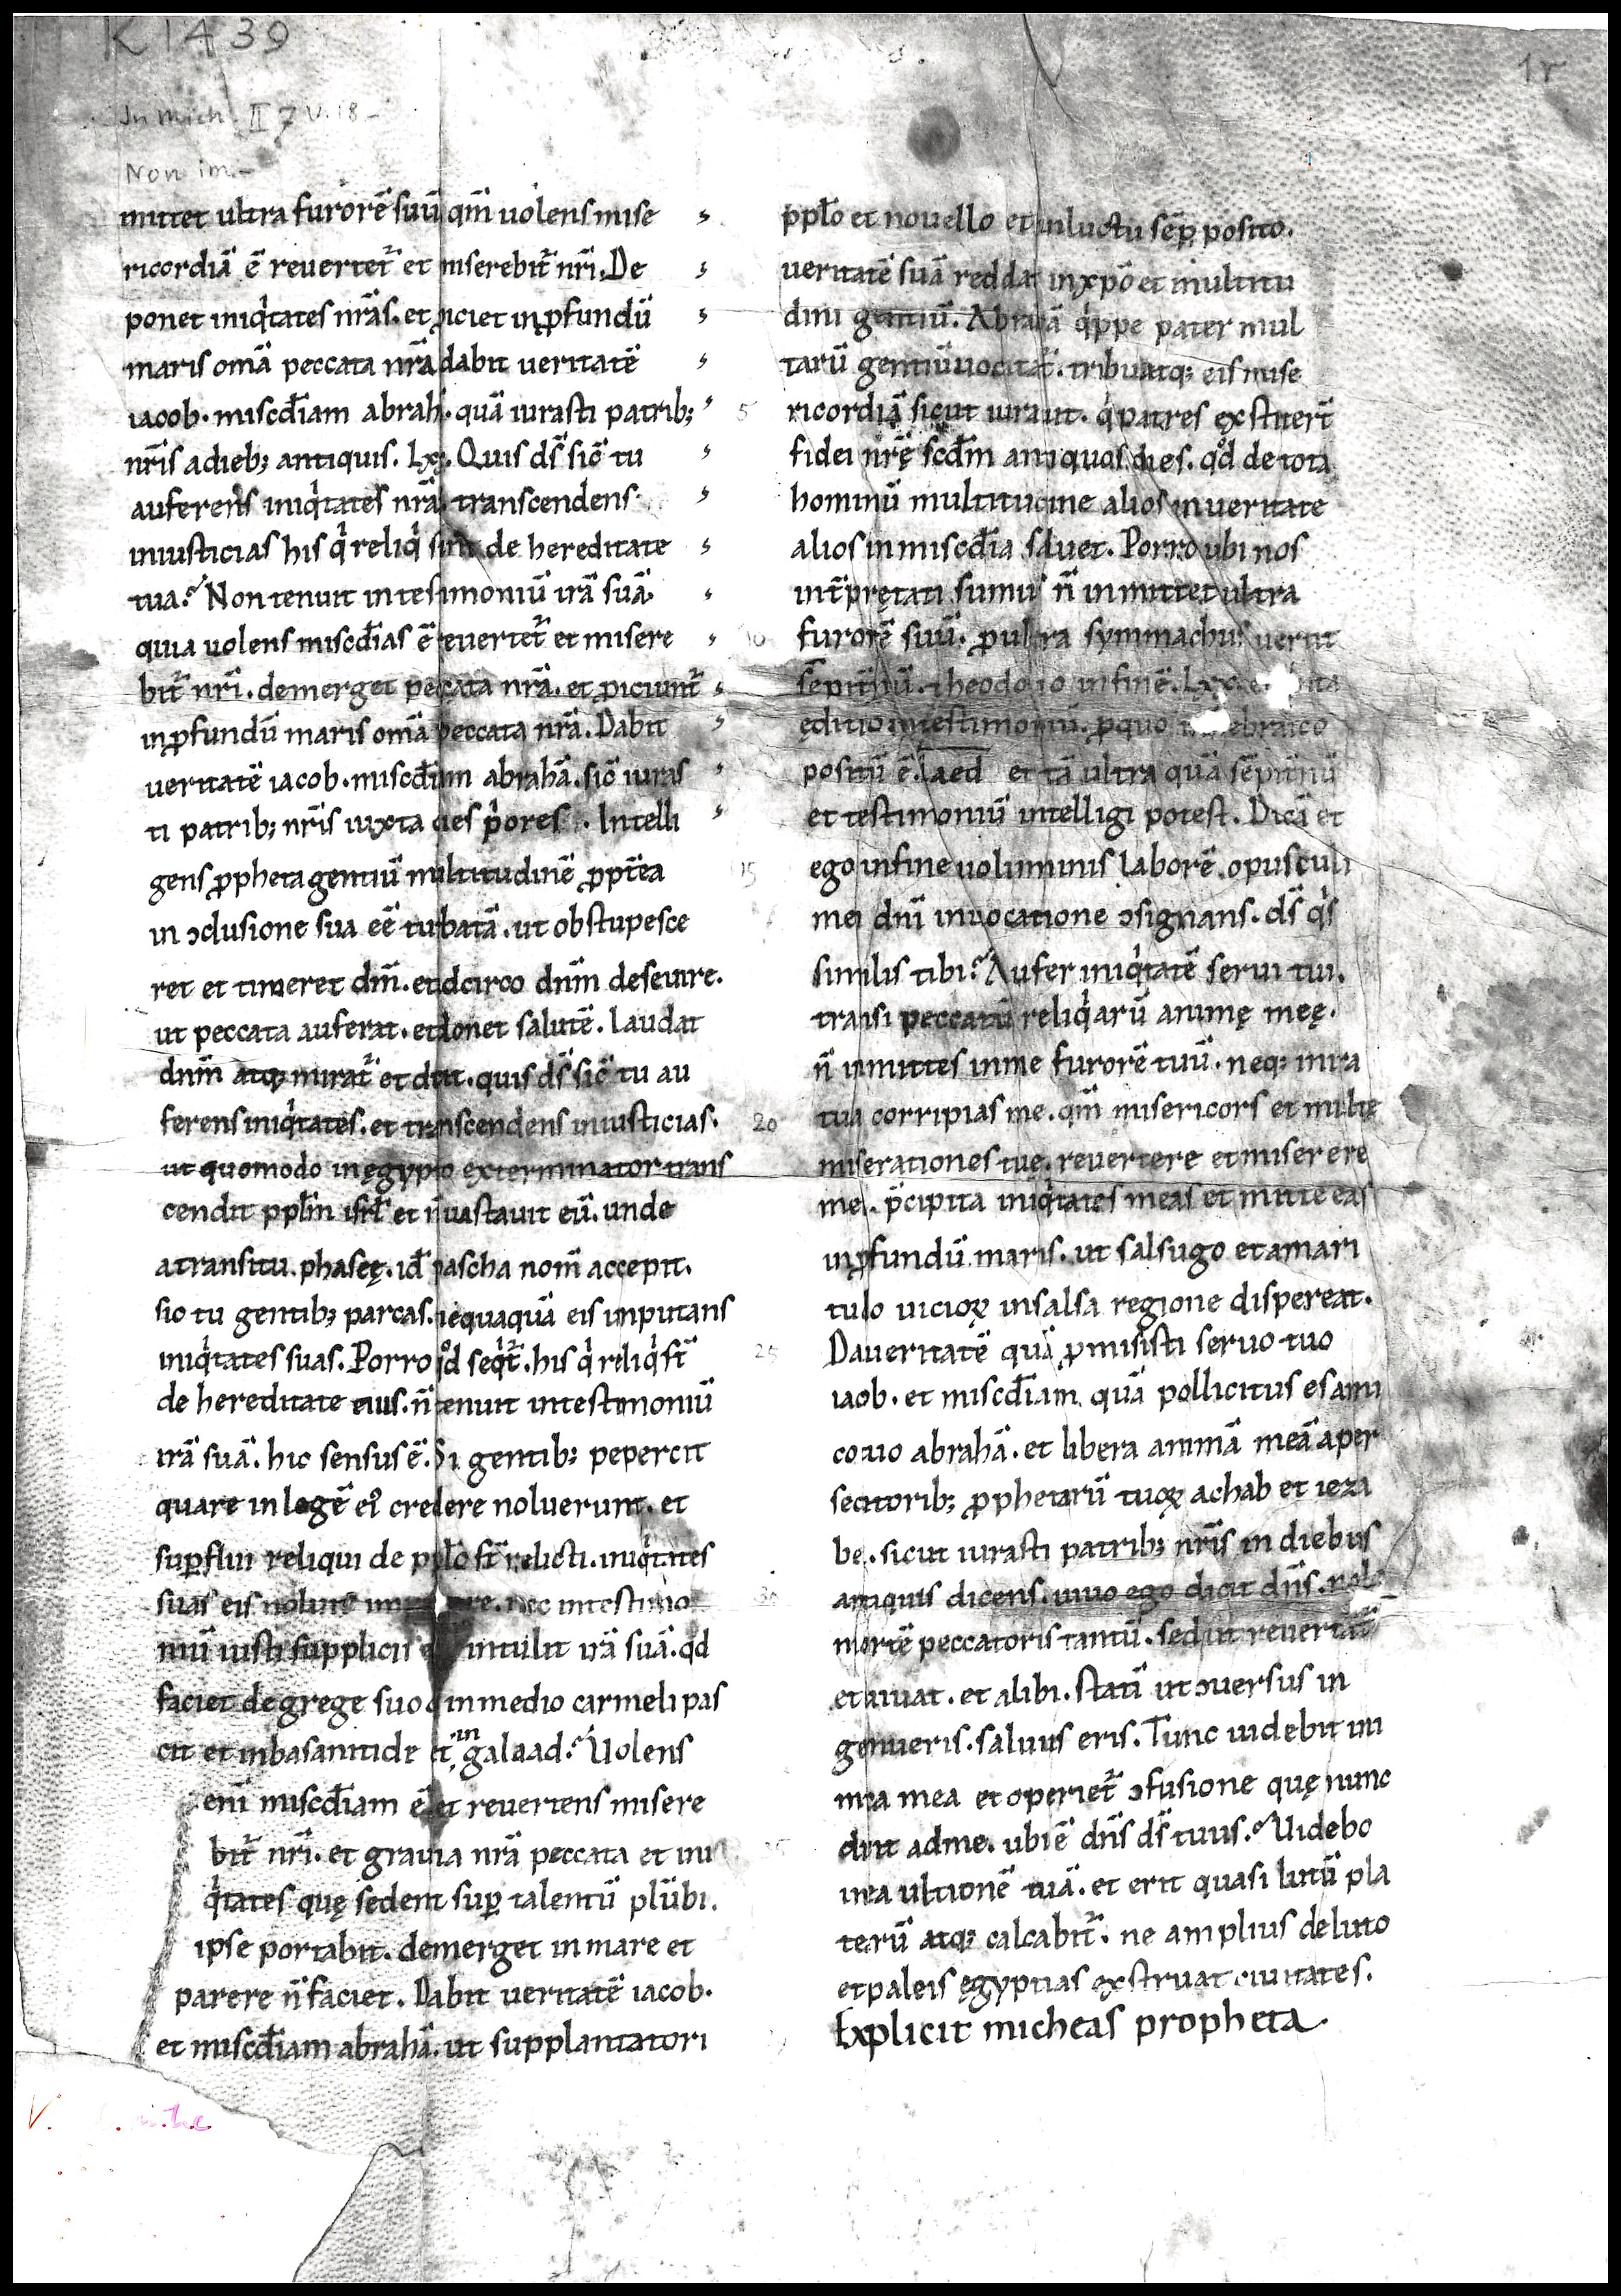 K 1439
1r
In Mich. II 7 v. 18 -
Non im.-
mittet ultra furorē suū qm̄ uolens mise
ricordiā ē reuertet̄ et miserebit̄ nr̄i. De
ponet iniq'tates nr̄as. et p̱iciet inp̱fundū
maris om̄a peccata nr̄a dabit ueritatē
iacob. miscđiam abrah. quā iurasti patrib;
nr̄is adieb; antiquis. Lxx. Quis ds̄ sic̄ tu
auferens iniq'tates nr̄as transcendens
iniusticias his q' reliq' sunt de hereditate
tua? Non tenuit intestimoniū irā suā.
quia uolens miscđias ē reuertet̄ et misere
bit̄ nr̄i. demerget peccata nr̄a. et p̱iciunt̄
inp̱fundū maris om̄a peccata nr̄a. Dabit
ueritatē iacob. miscđiam abrahā. sic̄ iuras
ti patrib; nr̄is iuxta dies p'ores. Intelli
gens p̱pheta gentiū multitudinē p̱pt̄ea
in ↄclusione sua eē turbatā. ut obstupesce
ret et timeret dm̄. et idcirco dnm̄ deseuire.
ut peccata auferat. et donet salutē. Laudat
dnm̄ atq; mirat̄ et dicit. quis ds̄ sic̄ tu au
ferens iniq'tates. et transcendens iniusticias.
ut quomodo inęgypto exterminator trans
cendit pplm̄ isrł et n̄ uastauit eū. unde
atransitu. phaseę. id pascha nom̄ accepit.
sic tu gentib; parcas. nequaquā eis inputans
iniq'tates suas. Porro qđ seqt̄. his q' reliq' st̄
de hereditate eius. n̄ tenuit intestimoniū
irā suā. hic sensus ē. Si gentib; pepercit
quare in legē ei' credere noluerunt. et
sup̱flui reliqui de pplo st̄ relicti. iniq'tates
suas eis noluit re. nec intestimo
niū iusti supplicii intulit irā suā. qđ
faciet de grege suo q' in medio carmeli pas
cit et inbasanitide et in galaad? Uolens
eni miscđiam ē et reuertens misere
bit̄ nr̄i. et grauia nr̄a peccata et ini
q'tates quę sedent sup̱ talentū plūbi.
ipse portabit. demerget in mare et
parere n̄ faciet. Dabit ueritatē iacob.
et miscđiam abrahā. ut supplantatori
pplo et nouello et inluctu sēp̱ posito.
ueritatē suā reddat inxp̄o et multitu
dini gentiū. Abrahā q'ppe pater mul
tarū gentiū uocitat̄. tribuatq; eis mise
5 ricordiā sicut iurauit. q' patres exstiter̄
fidei nr̄ę scđm antiquos dies. qđ de tota
hominū multitudine alios in ueritate
alios in miscđia saluet. Porro ubi nos
int̄prętati sumus n̄ inmittet ultra
10 furorē suū. p̱ ultra symmachus uertit
sēpit̄nū. theodotio infinē. Lxx.
ęditio intestimoniū. p̱quo in hebraico
positū ē. laed et tā ultra quā sēpit̄nū
et testimoniū intelligi potest. Dicā et
15 ego infine uoluminis laborē opusculi
mei dnī inuocatione ↄsignans. ds̄ q's
similis tibi? Aufer iniq'tatē serui tui.
transi peccatū reliq'arū animę meę.
n̄ inmittes inme furorē tuū. neq; inira
20 tua corripias me. qm̄ misericors et multę
miserationes tuę. reuertere et miserere
mei. p̄cipita iniq'tates meas et mitte eas
inp̱fundū maris. ut salsugo et amari
tudo uicioꝝ insalsa regione dispereat.
25 Da ueritatē quā p̱misisti seruo tuo
iaob. et miscđiam quā pollicitus es ami
co tuo abrahā. et libera animā meā aper
secutorib; p̱phetarū tuoꝝ achab et ieza
bel. sicut iurasti patrib; nr̄is in diebus
30 antiquis dicens. uiuo ego dicit dns̄. nolo
mortē peccatoris tantū. sed ut reuertat̄
et uiuat. et alibi. statī ut ↄuersus in
gemueris. saluus eris. Tunc uidebit ini
mica mea et operiet̄ ↄfusione quę nunc
dicit adme. ubi ē dns̄ ds̄ tuus? Uidebo
inea ultionē tuā. et erit quasi lutū pla
terū atq; calcabit̄. ne amplius deluto
et paleis ęgyptias exstruat ciuitates.
Explicit micheas propheta.